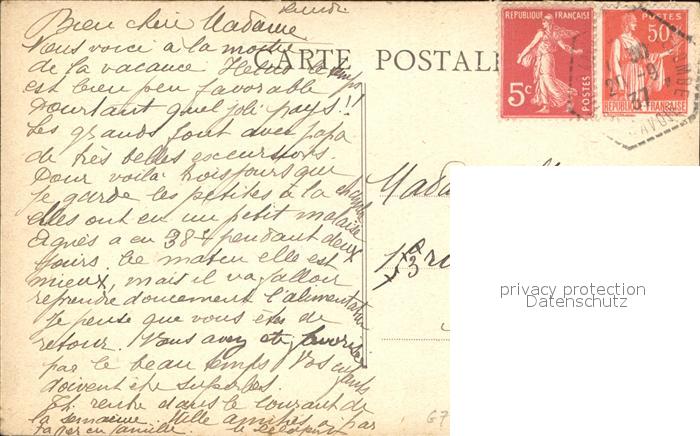 Lundi
Bien chère Madame
Vous voici à la moitié
de la vacance Hélas le temps
est bien peu favorable
Pourtant quel joli pays !!
Les grands font avec papa
de très belles excursions.
Pour voilà trois jours que
je garde les petites à la chambre
elles ont eu un petit malaise
Agnès a eu 38 pendant deux
jours. Ce matin elle est
mieux, mais il va falloir
reprendre doucement l'alimentation
Je pense que vous êtes de
retour. Vous avez été favorisée
par le beau temps Vos enfants
doivent être superbes.
Th. rentre dans le courant de
la semaine. Mille amitiés
en famille.
CARTE POSTALE
REPUBLIQUE FRANÇAISE
5c
POSTES
POSTES
50c
REPUBLIQUE FRANÇAISE
21-9
37
SAVOIE
Mada
13
privacy protection
Datenschutz